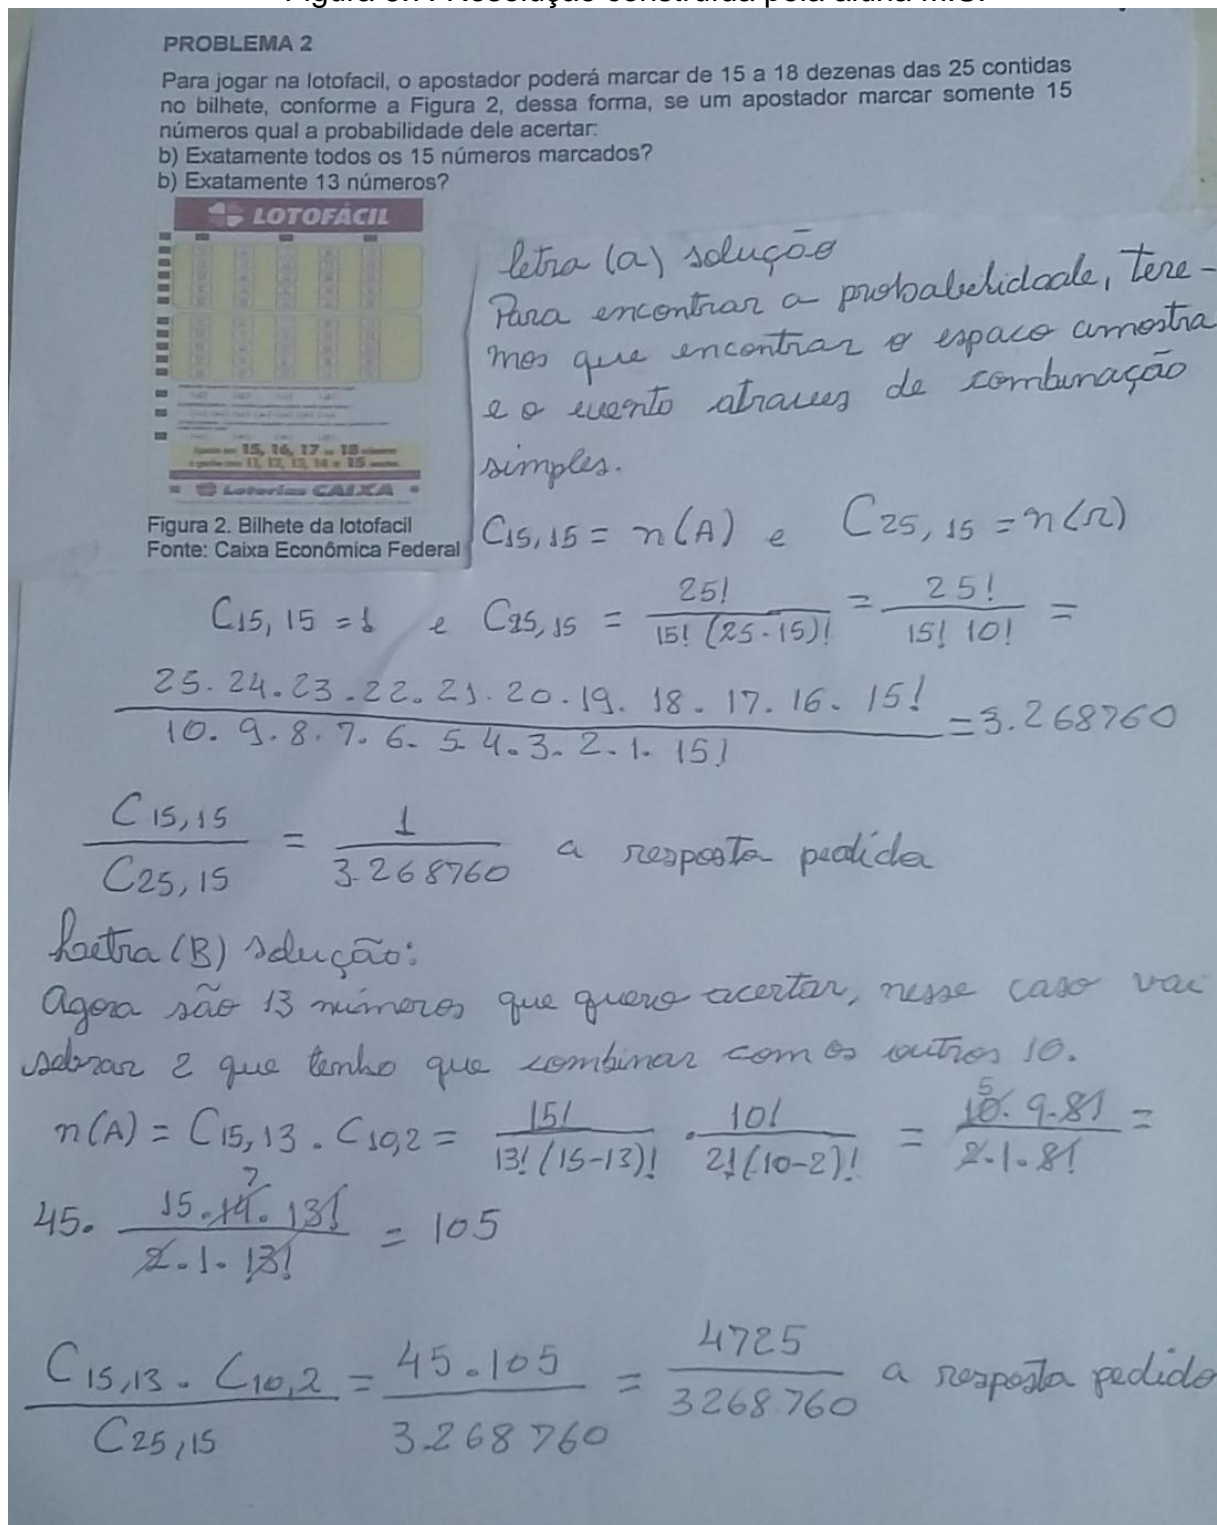 PROBLEMA 2
Para jogar na lotofacil, o apostador poderá marcar de 15 a 18 dezenas das 25 contidas
no bilhete, conforme a Figura 2, dessa forma, se um apostador marcar somente 15
números qual a probabilidade dele acertar:
b) Exatamente todos os 15 números marcados?
b) Exatamente 13 números?
LOTOFÁCIL
15, 16, 17 18
11, 12, 13, 14 e 15
Loterias CAIXA
Figura 2. Bilhete da lotofacil
Fonte: Caixa Econômica Federal
letra (a) solução
Para encontrar a probabelidade, tere-
mos que encontrar o espaco amostra
e o evento atraves de combinação
simples.
C15,15 = n(A) e C25,15 = n(Ω)
C15,15 = 1 e C25,15 = 25!/15!(25-15)! = 25!/15! 10! =
25.24.23.22.21.20.19.18.17.16.15!/10.9.8.7.6.5.4.3.2.1.15! = 3.268760
C15,15/C25,15 = 1/3.268760 a resposta pedida
Letra (B) solução:
Agora são 13 números que quero acertar, nesse caso vai
sobrar 2 que tenho que combinar com os outros 10.
n(A) = C15,13 . C10,2 = 15!/13!(15-13)! . 10!/2!(10-2)! = 5 10.9.8!/2.1.8! =
45. 15.14.13!/2.1.13! 7 = 105
C15,13 . C10,2/C25,15 = 45.105/3.268760 = 4725/3268760 a resposta pedido